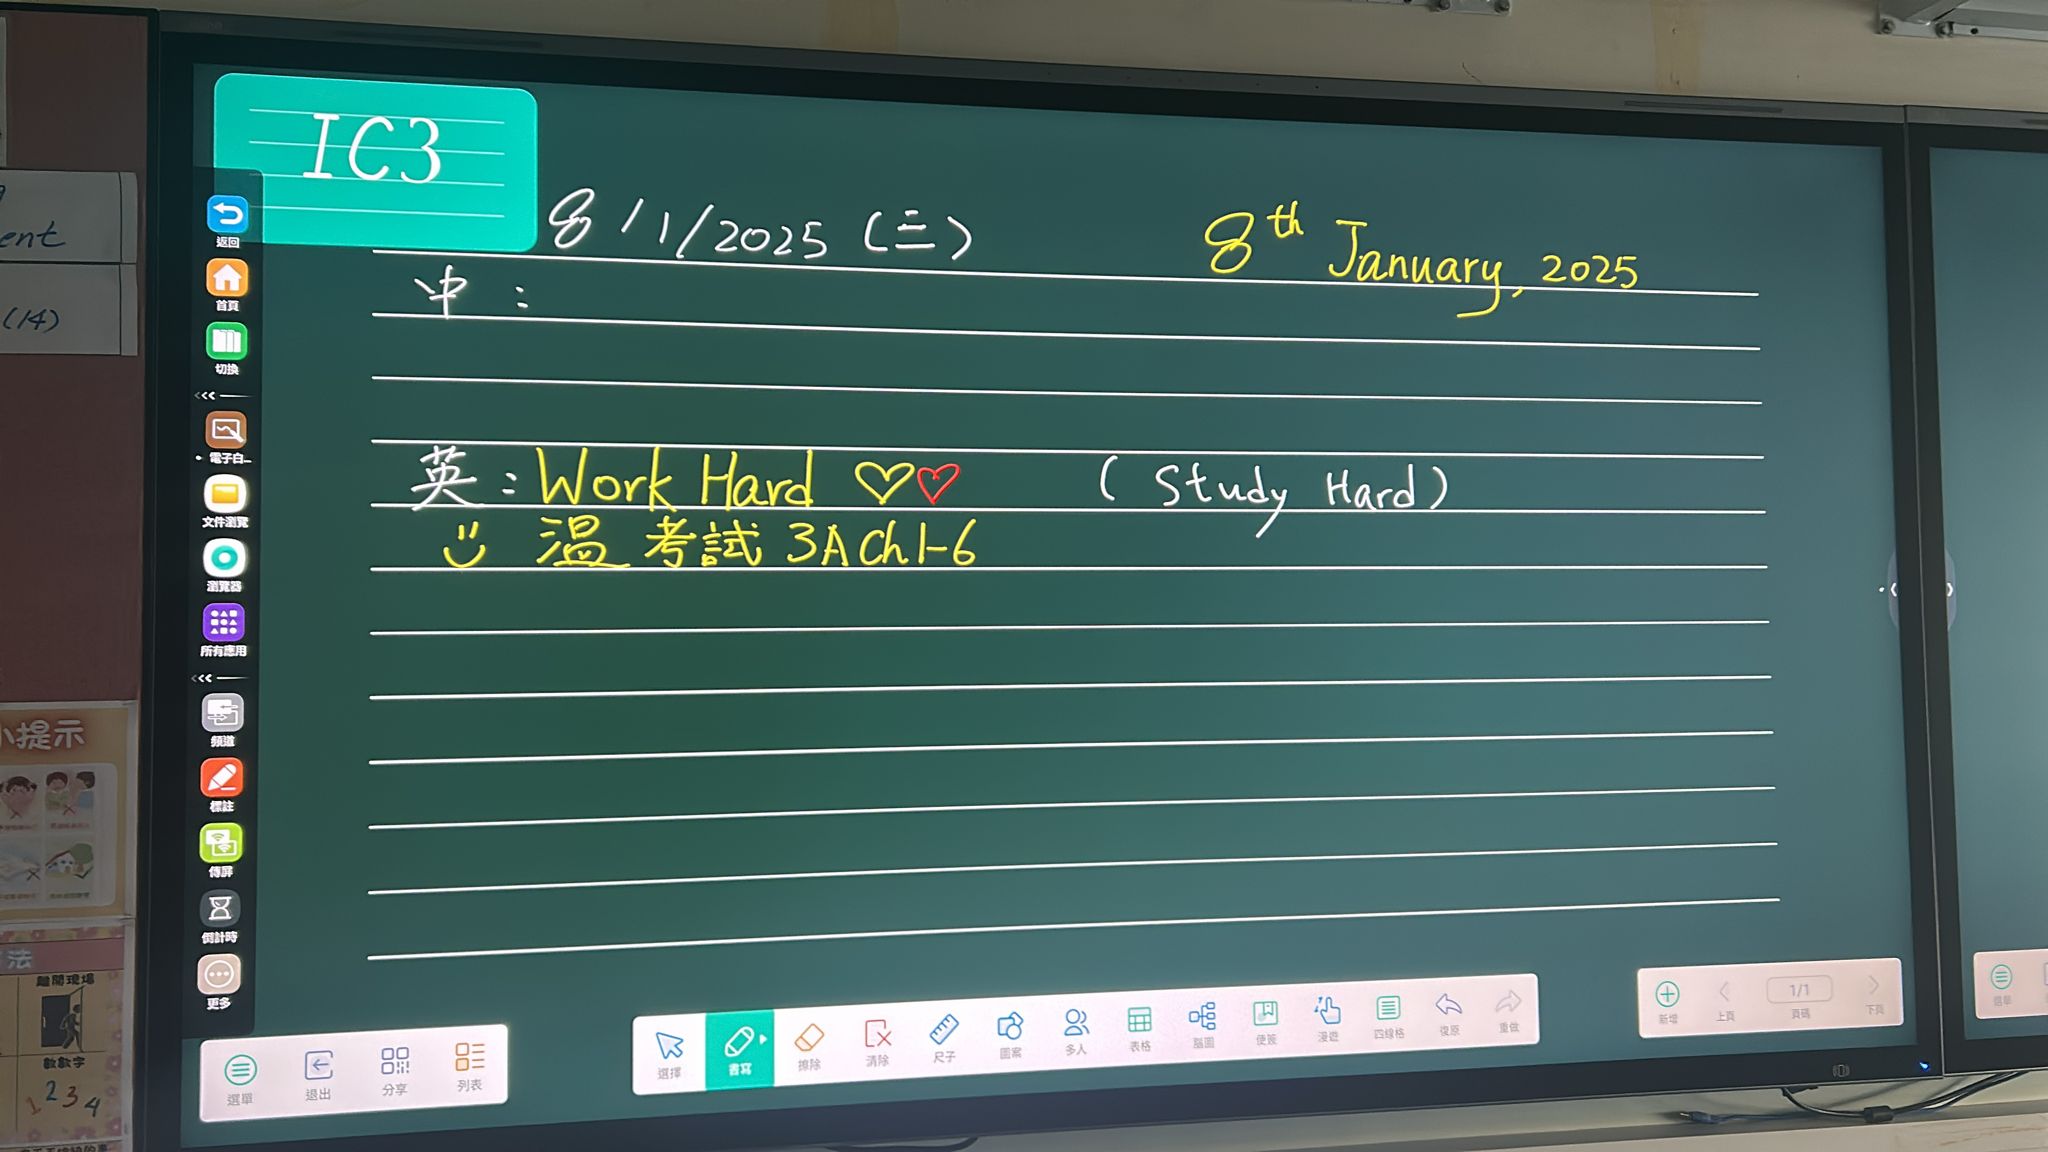 IC3
8/1/2025 (三)
8th January, 2025
中:
英: Work Hard ♡♡ (Study Hard)
温 考試 3A Ch1-6
返回
首頁
切換
電子白...
文件瀏覽
瀏覽器
所有應用
頻道
標註
傳屏
倒計時
更多
選單 退出 分享 列表
選擇 書寫 擦除 清除 尺子 圖案 多人 表格 腦圖 便簽 漫遊 四線格 復原 重做
新增 上頁 1/1 頁碼 下頁
選單
ent
(14)
小提示
法
離開現場
數數字
1 2 3 4